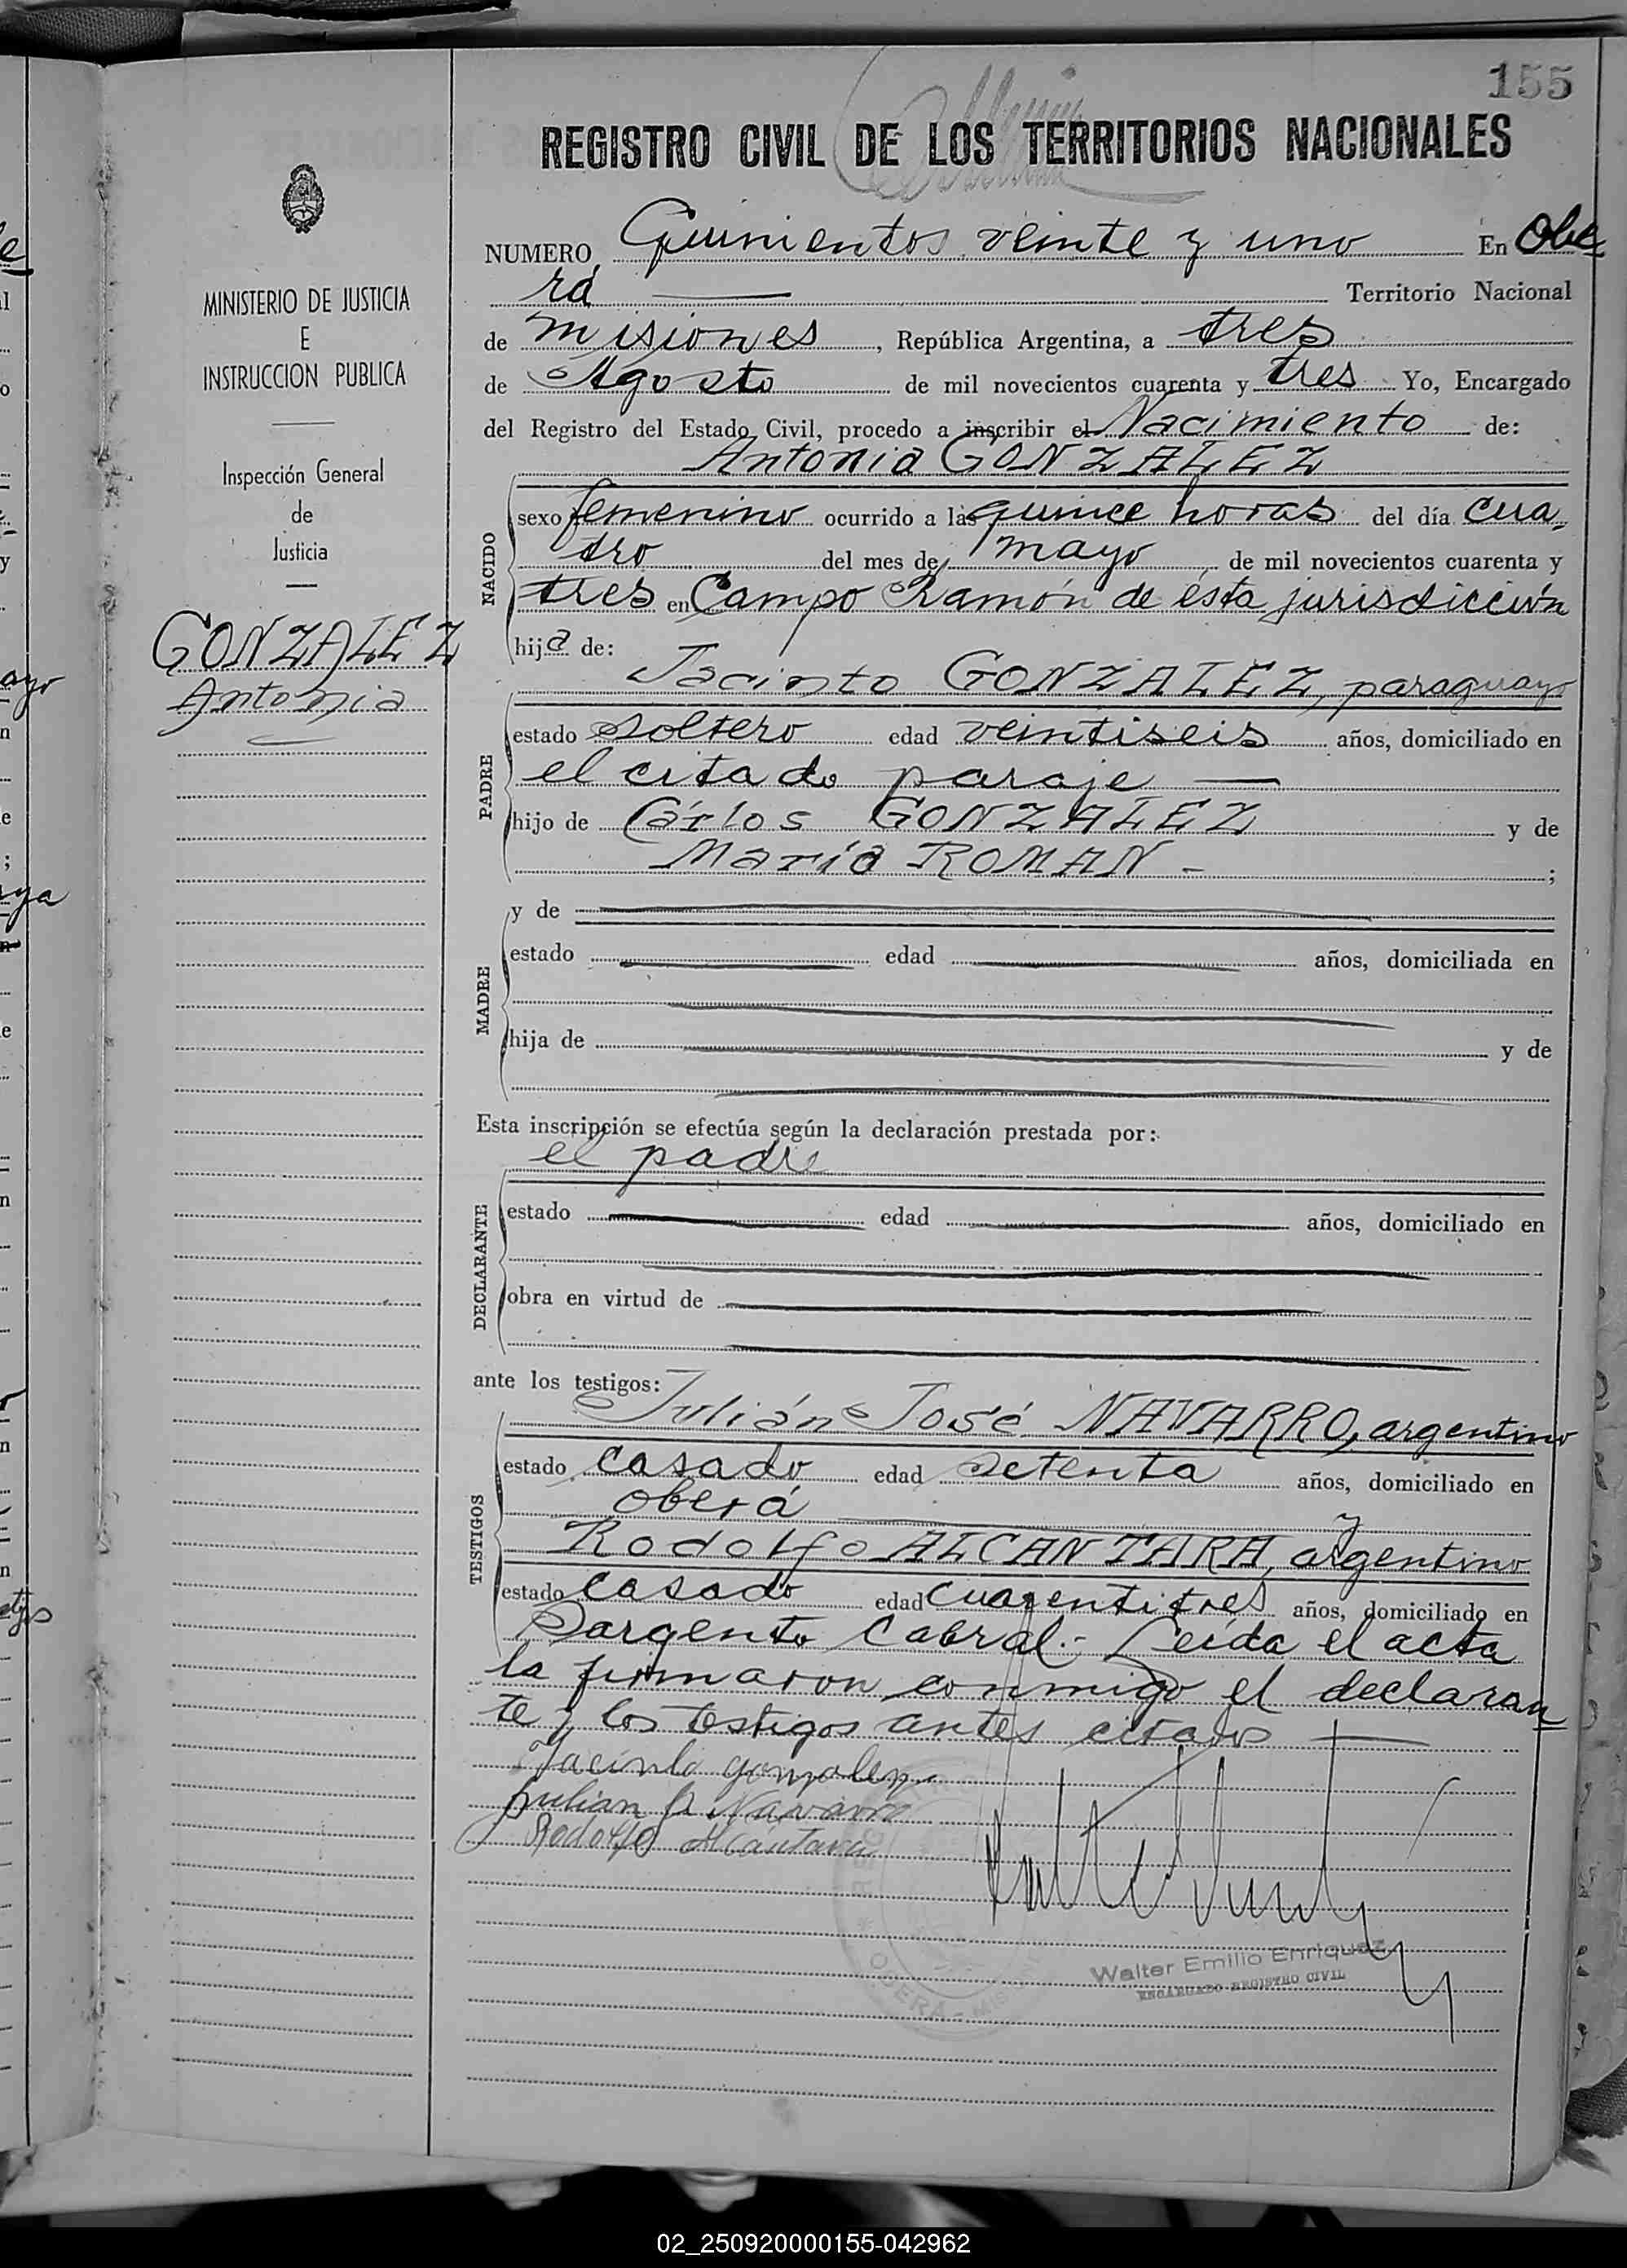 155
REGISTRO CIVIL DE LOS TERRITORIOS NACIONALES
MINISTERIO DE JUSTICIA
E
INSTRUCCION PUBLICA
Inspección General
de
Justicia
GONZALEZ
Antonia
NUMERO Quinientos veinte y uno En Obe
rá Territorio Nacional
de misiones, República Argentina, a tres
de Agosto de mil novecientos cuarenta y tres Yo, Encargado
del Registro del Estado Civil, procedo a inscribir el Nacimiento de:
Antonia GONZALEZ
NACIDO
sexo femenino ocurrido a las quince horas del día cua
tro del mes de mayo de mil novecientos cuarenta y
tres en Campo Ramón de ésta jurisdicción
hija de:
Jacinto GONZALEZ, paraguayo
PADRE
estado soltero edad veintiseis años, domiciliado en
el citado paraje
hijo de Cárlos GONZALEZ y de
María ROMAN - ;
y de
MADRE
estado edad años, domiciliada en
hija de y de
Esta inscripción se efectúa según la declaración prestada por:
el padre
DECLARANTE
estado edad años, domiciliado en
obra en virtud de
ante los testigos:
Julián José NAVARRO, argentino
TESTIGOS
estado casado edad setenta años, domiciliado en
oberá y
Rodolfo ALCANTARA, argentino
estado casado edad cuarentitres años, domiciliado en
Sargento Cabral.- Leída el acta
la firmaron conmigo el declaran
te y los testigos antes citados
Jacinto gonzalez
Julian J. Navarro
Rodolfo Alcantara
OBERÁ - MISIONES
Walter Emilio Enriquez
ENCARGADO REGISTRO CIVIL
02_250920000155-042962